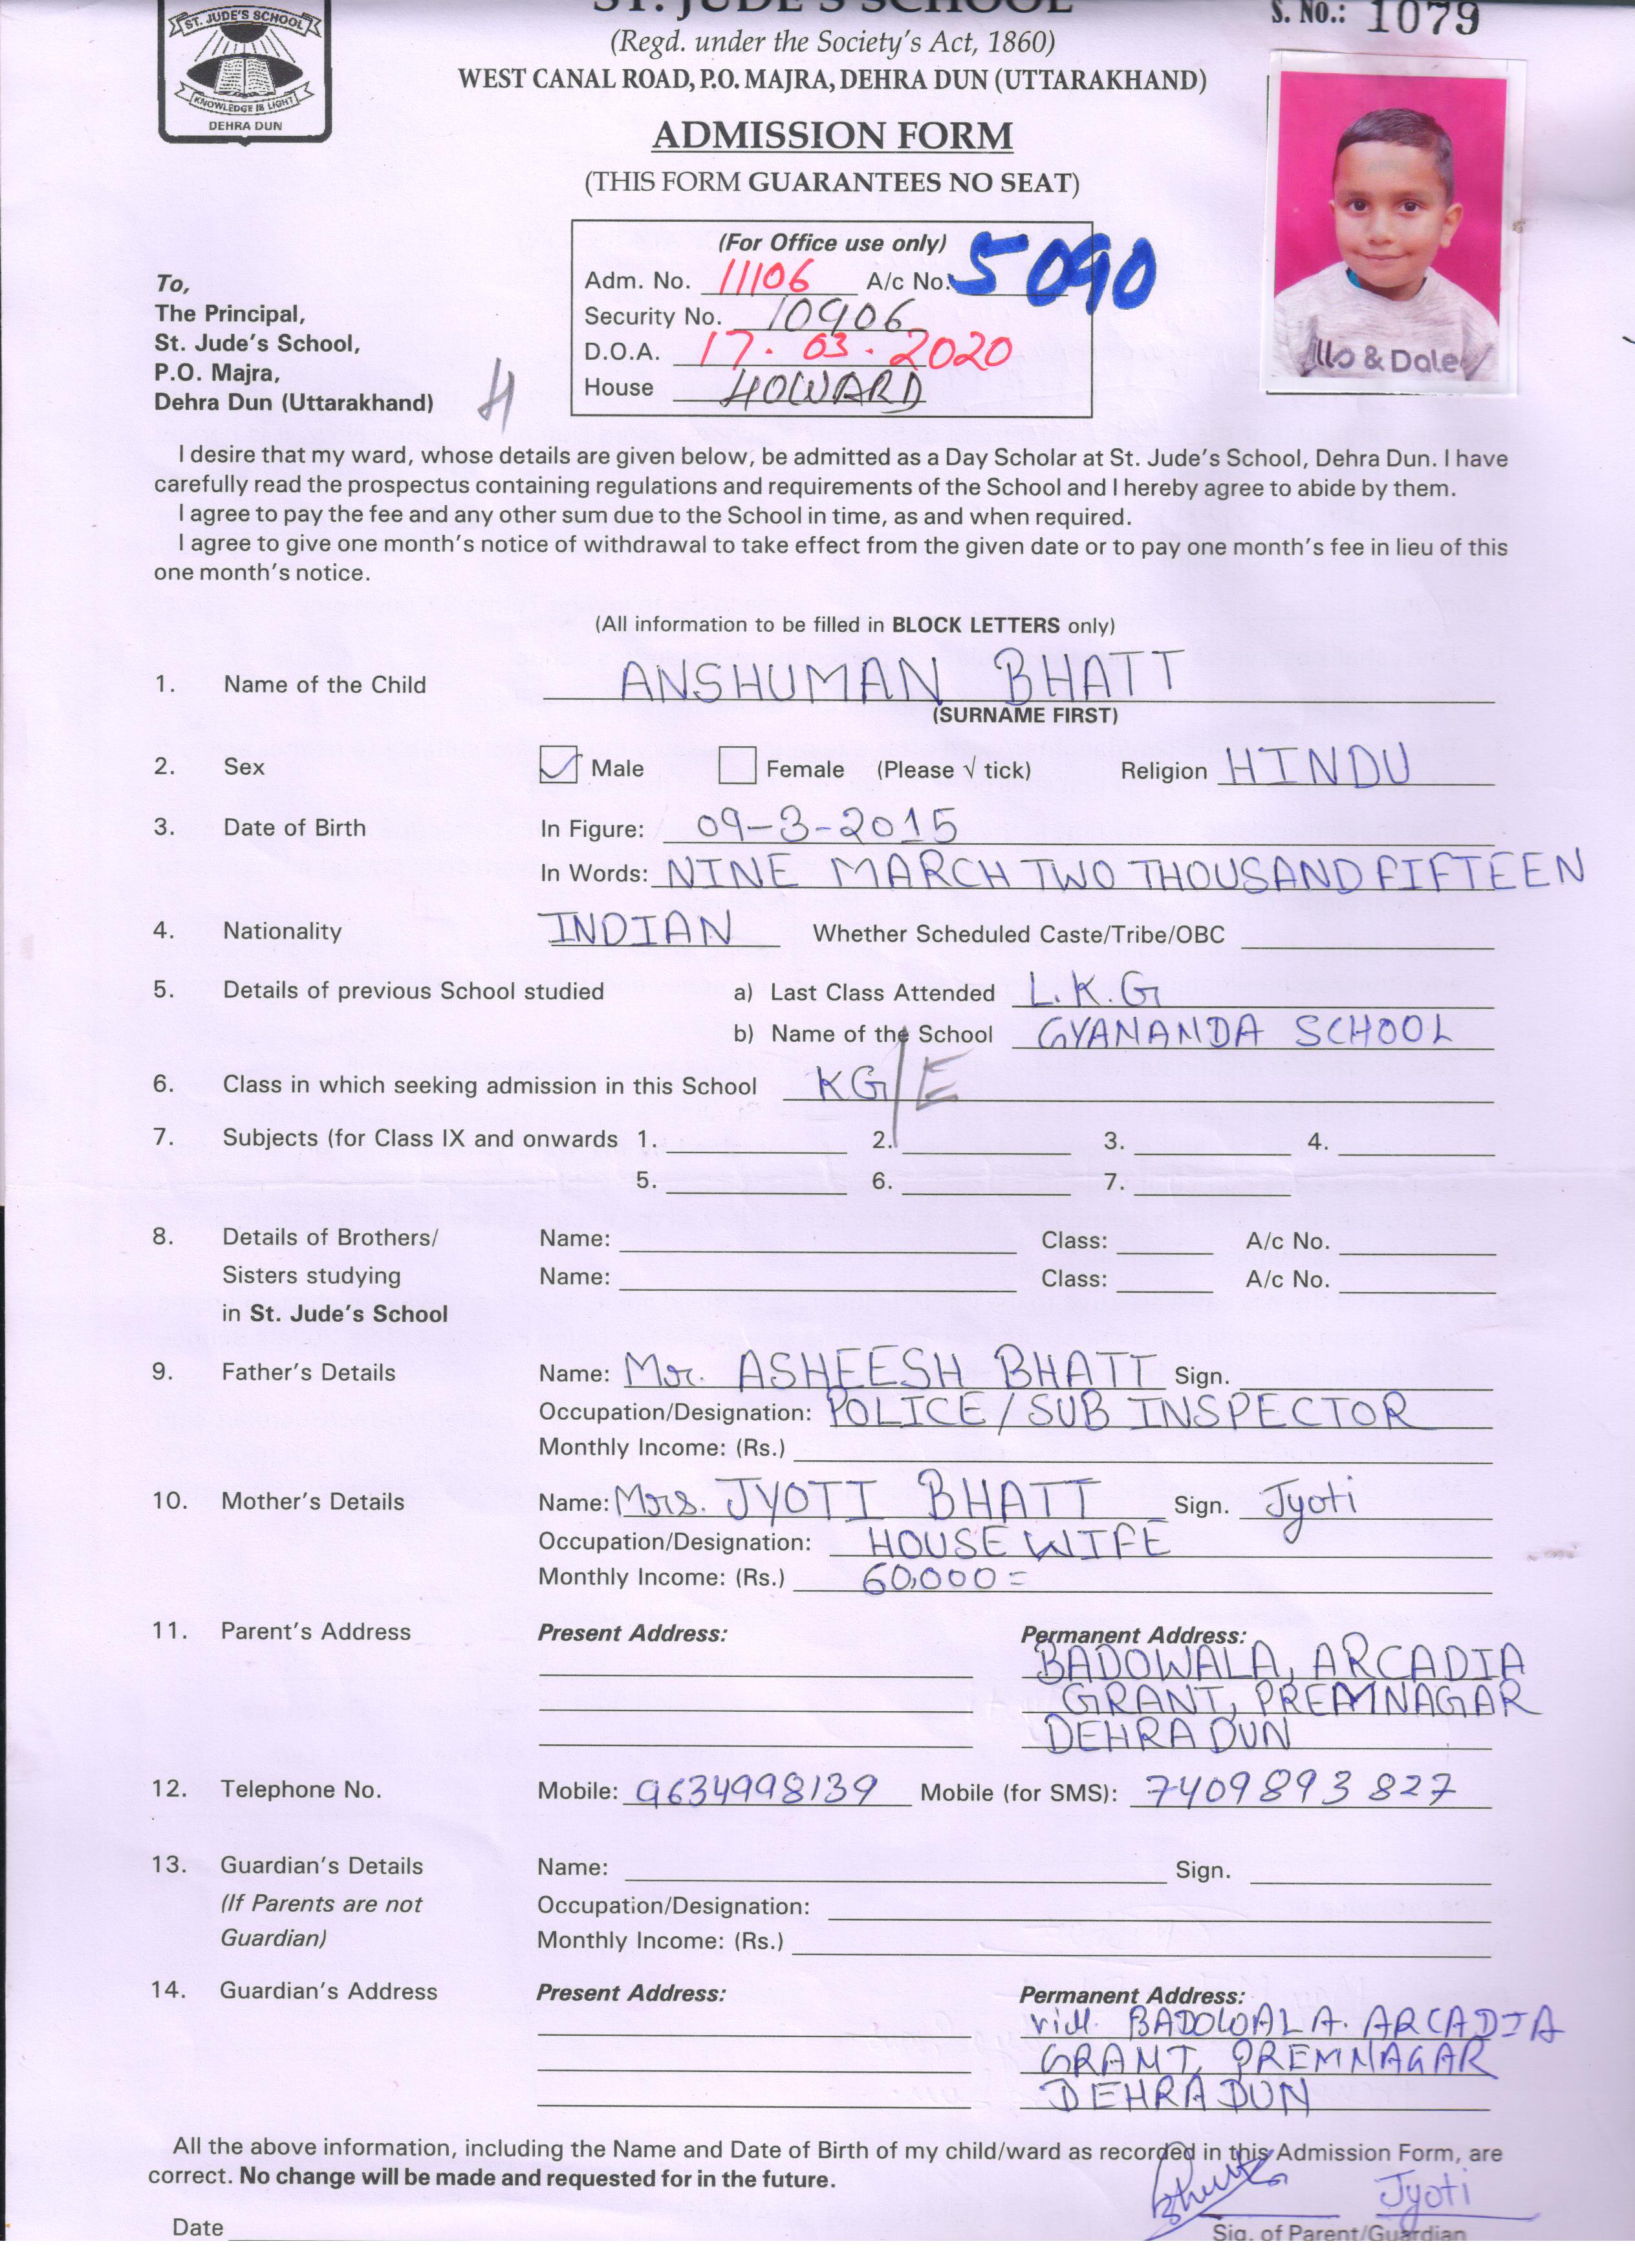 ST. JUDE'S SCHOOL
S. No.: 1079
ST. JUDE'S SCHOOL
KNOWLEDGE IS LIGHT
DEHRA DUN
(Regd. under the Society's Act, 1860)
WEST CANAL ROAD, P.O. MAJRA, DEHRA DUN (UTTARAKHAND)
ADMISSION FORM
(THIS FORM GUARANTEES NO SEAT)
(For Office use only)
Adm. No. 11106 A/c No. 5090
Security No. 10906
D.O.A. 17.03.2020
House HOWARD
To,
The Principal,
St. Jude's School,
P.O. Majra,
Dehra Dun (Uttarakhand)
H
& Dale
I desire that my ward, whose details are given below, be admitted as a Day Scholar at St. Jude's School, Dehra Dun. I have
carefully read the prospectus containing regulations and requirements of the School and I hereby agree to abide by them.
I agree to pay the fee and any other sum due to the School in time, as and when required.
I agree to give one month's notice of withdrawal to take effect from the given date or to pay one month's fee in lieu of this
one month's notice.
(All information to be filled in BLOCK LETTERS only)
1. Name of the Child ANSHUMAN BHATT
(SURNAME FIRST)
2. Sex Male Female (Please √ tick) Religion HINDU
3. Date of Birth In Figure: 09-3-2015
In Words: NINE MARCH TWO THOUSAND FIFTEEN
4. Nationality INDIAN Whether Scheduled Caste/Tribe/OBC
5. Details of previous School studied a) Last Class Attended L.K.G
b) Name of the School GYANANDA SCHOOL
6. Class in which seeking admission in this School KG/E
7. Subjects (for Class IX and onwards 1. 2. 3. 4.
5. 6. 7.
8. Details of Brothers/ Name: Class: A/c No.
Sisters studying Name: Class: A/c No.
in St. Jude's School
9. Father's Details Name: Mr. ASHEESH BHATT Sign.
Occupation/Designation: POLICE/SUB INSPECTOR
Monthly Income: (Rs.)
10. Mother's Details Name: Mrs. JYOTI BHATT Sign. Jyoti
Occupation/Designation: HOUSE WIFE
Monthly Income: (Rs.) 60,000=
11. Parent's Address Present Address: Permanent Address:
BADOWALA, ARCADIA
GRANT, PREMNAGAR
DEHRA DUN
12. Telephone No. Mobile: 9634998139 Mobile (for SMS): 7409893827
13. Guardian's Details Name: Sign.
(If Parents are not Occupation/Designation:
Guardian) Monthly Income: (Rs.)
14. Guardian's Address Present Address: Permanent Address:
vill. BADOWALA. ARCADIA
GRANT, PREMNAGAR
DEHRA DUN
All the above information, including the Name and Date of Birth of my child/ward as recorded in this Admission Form, are
correct. No change will be made and requested for in the future.
Jyoti
Date
Sig. of Parent/Guardian